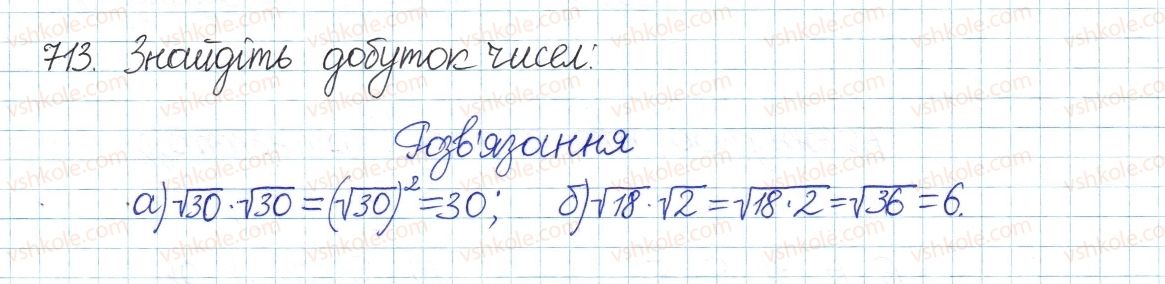 713. Знайдіть добуток чисел:
Розв'язання
а) √30 · √30 = (√30)² = 30; б) √18 · √2 = √(18 · 2) = √36 = 6.